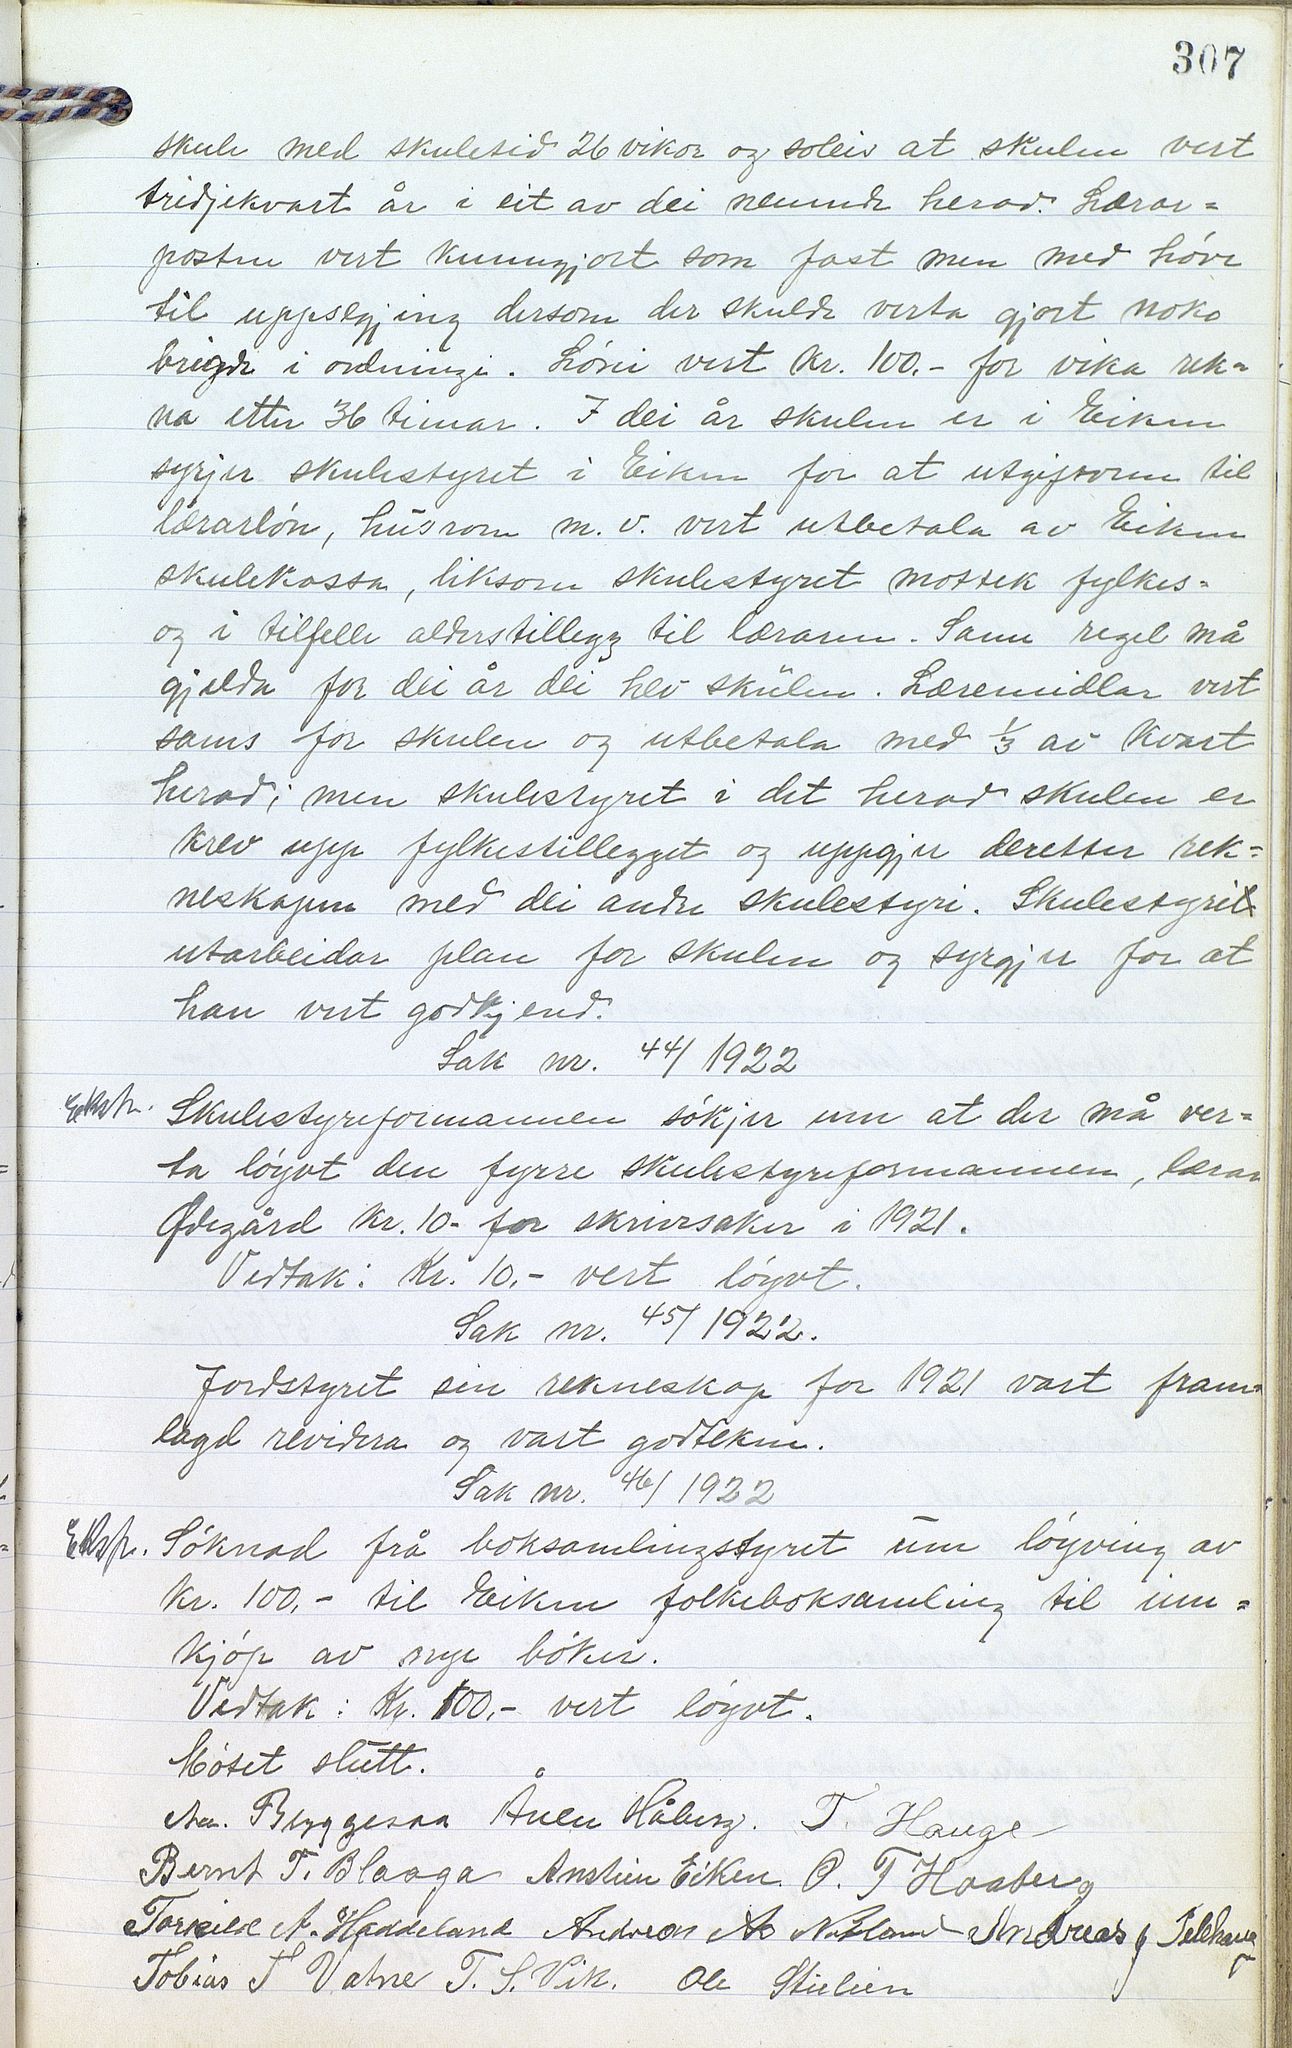 307
skule med skuletid 26 vikor og soleis at skulen vert
tridjekvart år i eit av dei nemnde herad. Lærar-
posten vert kunngjort som fast men med høve
til uppsegjing dersom der skulde verta gjort noko
brigde i ordningi. Løni vert kr. 100.- for vika rek-
na etter 36 timar. I dei år skulen er i Eiken
syrjer skulestyret i Eiken for at utgiftom til
lærarløn, husrom m.v. vert utbetala av Eiken
skulekassa, liksom skulestyret mottek fylkes-
og i tilfelle alderstillegg til læraren. Same regel må
gjelda for dei år dei hev skulen. Læremidlar vert
sams for skulen og utbetala med 1/3 av kvart
herad; men skulestyret i det herad skulen er
krev upp fylkestillegget og uppgjer deretter rek-
neskapen med dei andre skulestyri. Skulestyri
utarbeidar plan for skulen og syrgjer for at
han vert godkjend.
Sak nr. 44/1922
Ekstr. Skulestyreformannen søkjer um at der må ver-
ta løyvt den fyrre skulestyreformannen, lærar
Ødegård kr. 10- for skrivesaker i 1921.
Vedtak: Kr. 10,- vert løyvt.
Sak nr. 45/1922.
Jordstyret sin rekneskap for 1921 vart fram-
lagd revidera og vart godteken.
Sak nr. 46/1922
Ekstr. Søknad frå boksamlingsstyret um løyving av
kr. 100,- til Eiken folkeboksamling til inn-
kjøp av nye bøker.
Vedtak: Kr. 100,- vert løyvt.
Møtet slutt.
Bryggesaa Ånen Håberg. T. Hauge
Bernt T. Blaaga Anstein Eiken. O. T Haaberg
Torkild A. Haddeland Andreas Andreas
Tobias T Vatne T. S. Vik. Ole Stulien